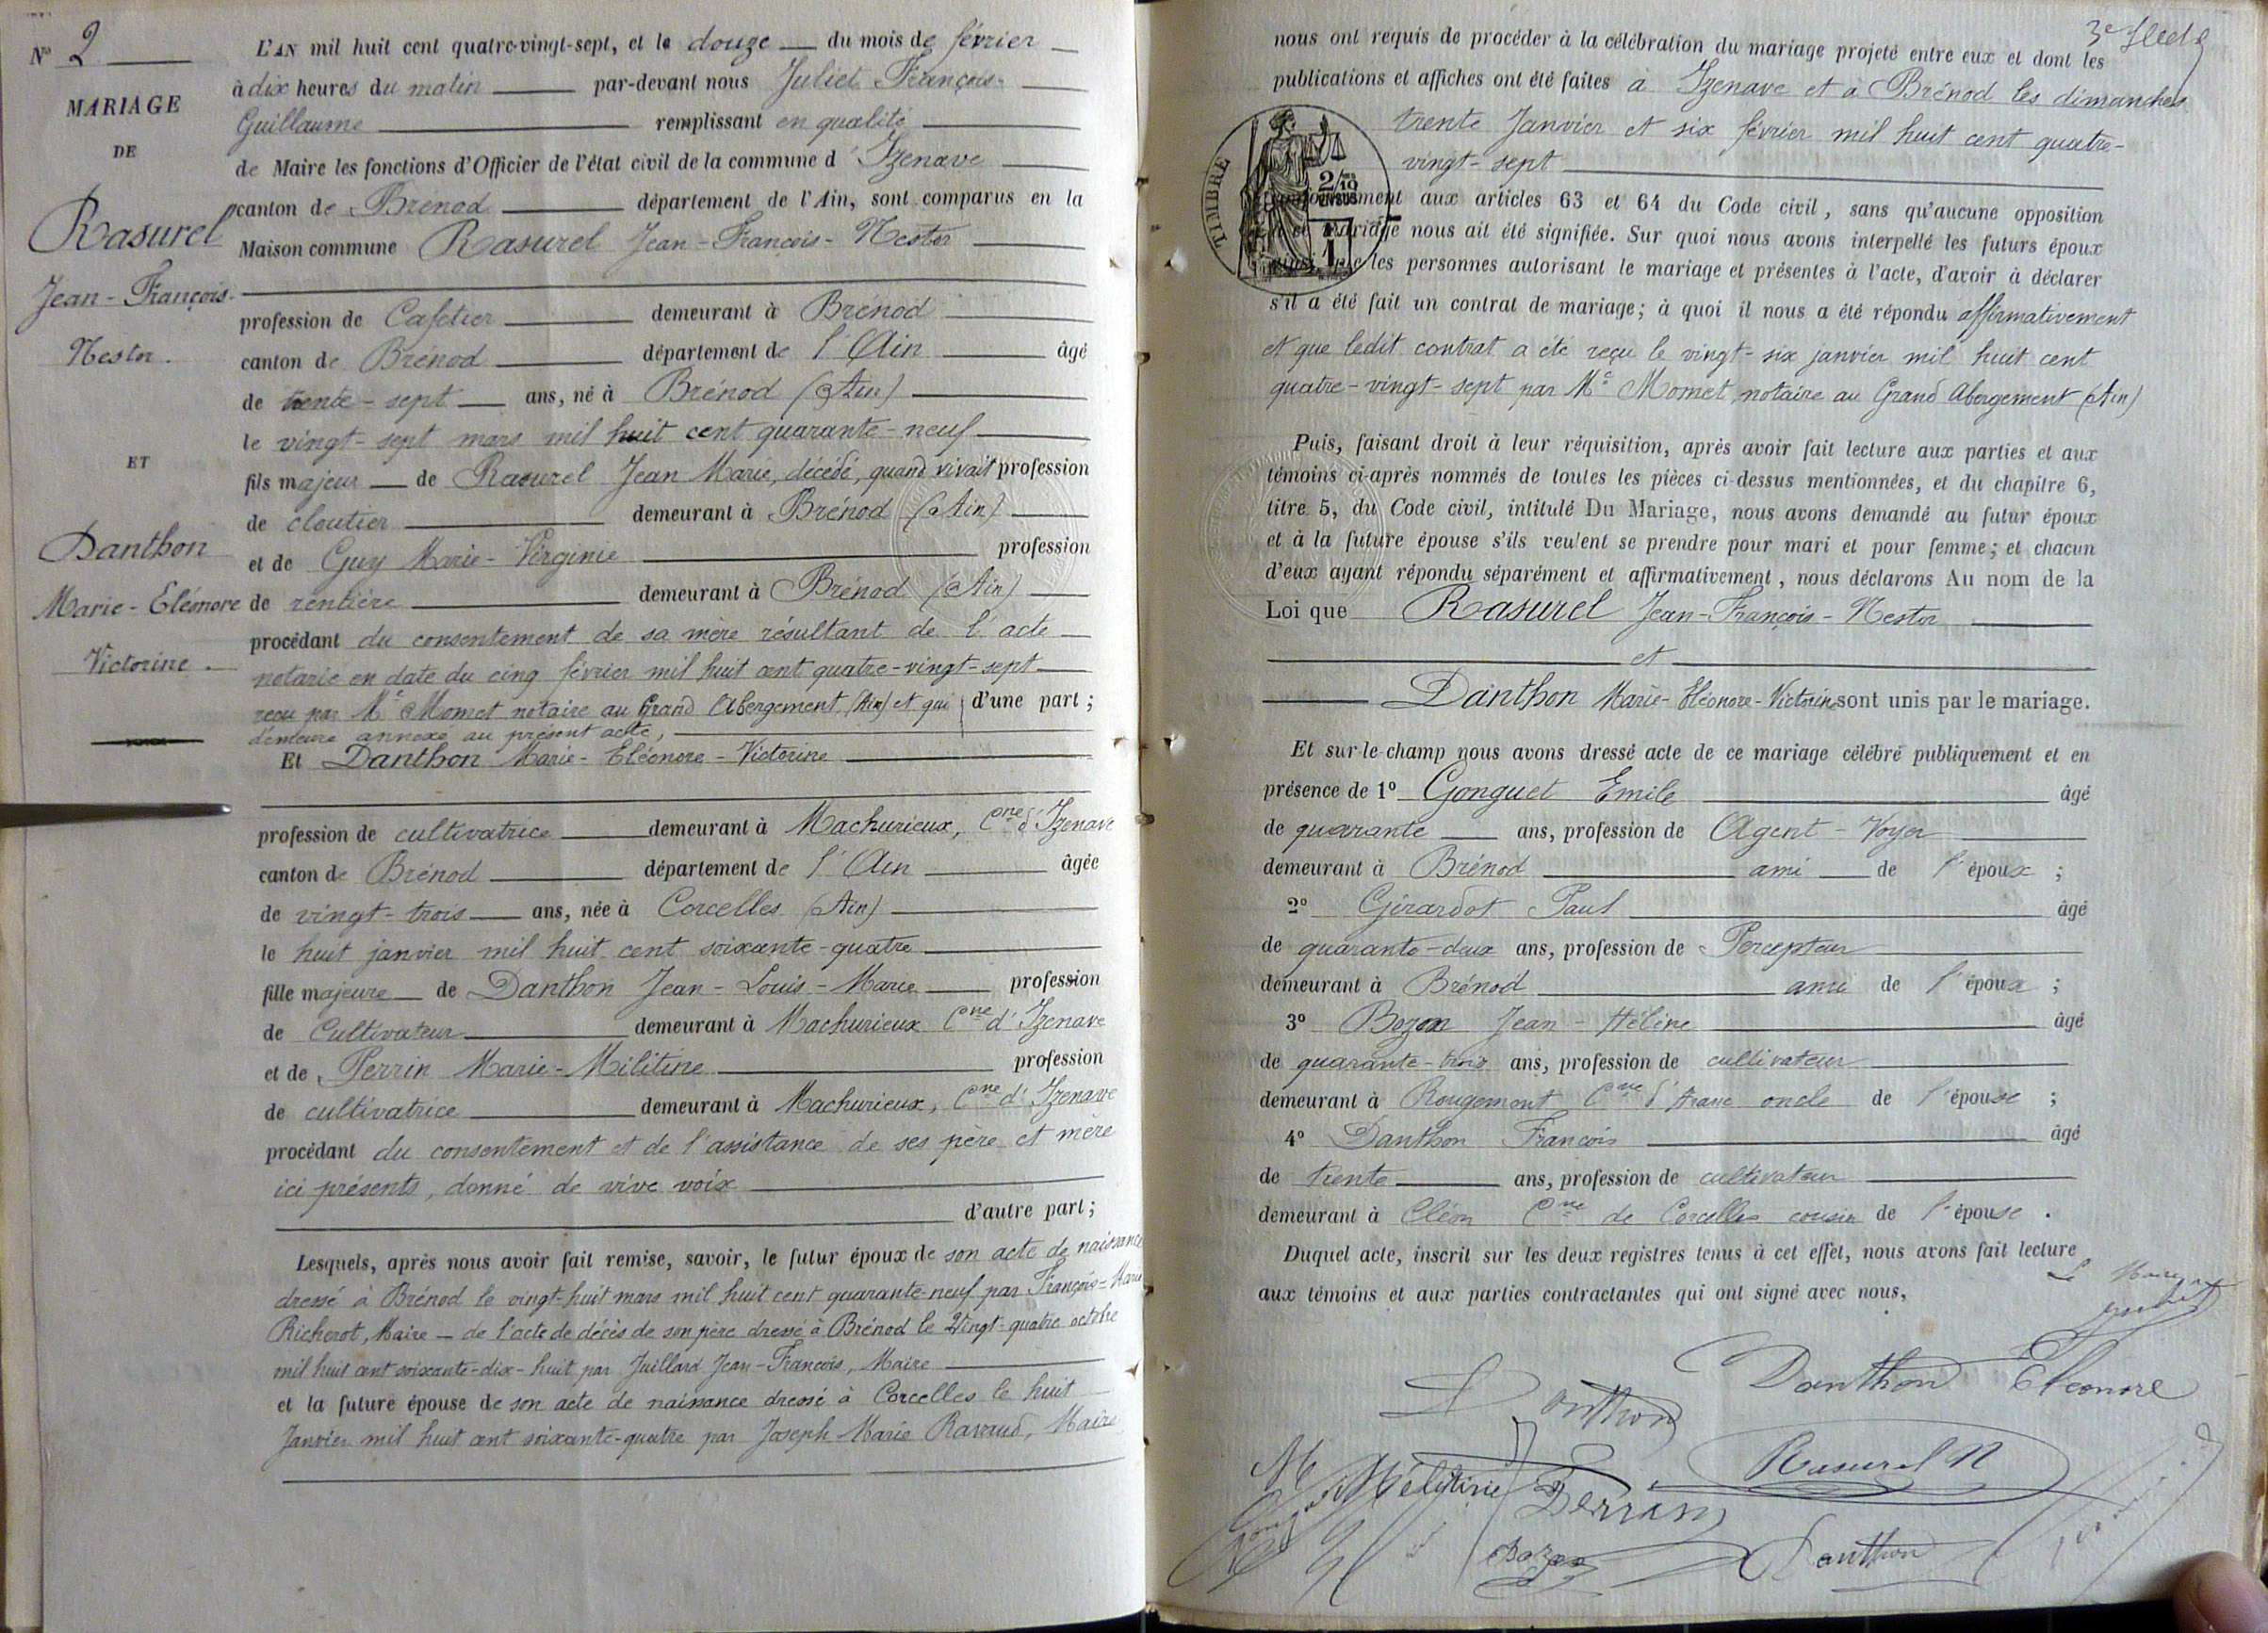 Nº 2
MARIAGE
DE
Rasurel
Jean-François-
Nestor.
ET
Danthon
Marie-Eléonore
Victorine.
L'AN mil huit cent quatre-vingt-sept, et le douze du mois de février
à dix heures du matin par-devant nous Juliet François-
Guillaume remplissant en qualité
de Maire les fonctions d'Officier de l'état civil de la commune d'Izenave
canton de Brénod département de l'Ain, sont comparus en la
Maison commune Rasurel Jean-François-Nestor
profession de Cafetier demeurant à Brénod
canton de Brénod département de l'Ain âgé
de trente-sept ans, né à Brénod (Ain)
le vingt-sept mars mil huit cent quarante-neuf
fils majeur de Rasurel Jean Marie, décédé, quand vivait profession
de cloutier demeurant à Brénod (Ain)
et de Guy Marie-Virginie profession
de rentière demeurant à Brénod (Ain)
procédant du consentement de sa mère résultant de l'acte
notarié en date du cinq février mil huit cent quatre-vingt-sept
reçu par Me Momet notaire au Grand Abergement (Ain) et qui d'une part;
demeure annexé au présent acte,
Et Danthon Marie-Eléonore-Victorine
profession de cultivatrice demeurant à Machurieux, Cne d'Izenave
canton de Brénod département de l'Ain âgée
de vingt-trois ans, née à Corcelles (Ain)
le huit janvier mil huit cent soixante-quatre
fille majeure de Danthon Jean-Louis-Marie profession
de Cultivateur demeurant à Machurieux Cne d'Izenave
et de Perrin Marie-Militine profession
de cultivatrice demeurant à Machurieux, Cne d'Izenave
procédant du consentement et de l'assistance de ses père et mère
ici présents, donné de vive voix
d'autre part;
Lesquels, après nous avoir fait remise, savoir, le futur époux de son acte de naissance
dressé à Brénod le vingt-huit mars mil huit cent quarante-neuf par François-Marie
Richerot, Maire – de l'acte de décès de son père dressé à Brénod le vingt-quatre octobre
mil huit cent soixante-dix-huit par Juillard Jean-François, Maire
et la future épouse de son acte de naissance dressé à Corcelles le huit
Janvier mil huit cent soixante-quatre par Joseph-Marie Ravaud, Maire
nous ont requis de procéder à la célébration du mariage projeté entre eux et dont les
publications et affiches ont été faites à Izenave et à Brénod les dimanches
trente Janvier et six février mil huit cent quatre-
vingt-sept
TIMBRE
2/10
EN SUS
aux articles 63 et 64 du Code civil, sans qu'aucune opposition
mariage nous ait été signifiée. Sur quoi nous avons interpellé les futurs époux
ainsi que les personnes autorisant le mariage et présentes à l'acte, d'avoir à déclarer
s'il a été fait un contrat de mariage; à quoi il nous a été répondu affirmativement
et que ledit contrat a été reçu le vingt-six janvier mil huit cent
quatre-vingt-sept par Me Momet, notaire au Grand Abergement (Ain)
Puis, faisant droit à leur réquisition, après avoir fait lecture aux parties et aux
témoins ci-après nommés de toutes les pièces ci-dessus mentionnées, et du chapitre 6,
titre 5, du Code civil, intitulé Du Mariage, nous avons demandé au futur époux
et à la future épouse s'ils veulent se prendre pour mari et pour femme; et chacun
d'eux ayant répondu séparément et affirmativement, nous déclarons Au nom de la
Loi que Rasurel Jean-François-Nestor
et
Danthon Marie-Eléonore-Victorine sont unis par le mariage.
Et sur-le-champ nous avons dressé acte de ce mariage célébré publiquement et en
présence de 1º Gonguet Emile âgé
de quarante ans, profession de Agent-Voyer
demeurant à Brénod ami de l'époux;
2º Girardot Paul âgé
de quarante-deux ans, profession de Percepteur
demeurant à Brénod ami de l'époux;
3º Bozon Jean-Hélène âgé
de quarante-trois ans, profession de cultivateur
demeurant à Rougemont Cne d'Aranc oncle de l'épouse;
4º Danthon François âgé
de trente ans, profession de cultivateur
demeurant à Cléon Cne de Corcelles cousin de l'épouse.
Duquel acte, inscrit sur les deux registres tenus à cet effet, nous avons fait lecture
aux témoins et aux parties contractantes qui ont signé avec nous,
Le Maire
Danthon Eléonore
Danthon
Rasurel N
M Mélitine Perrin
Bozon
Danthon